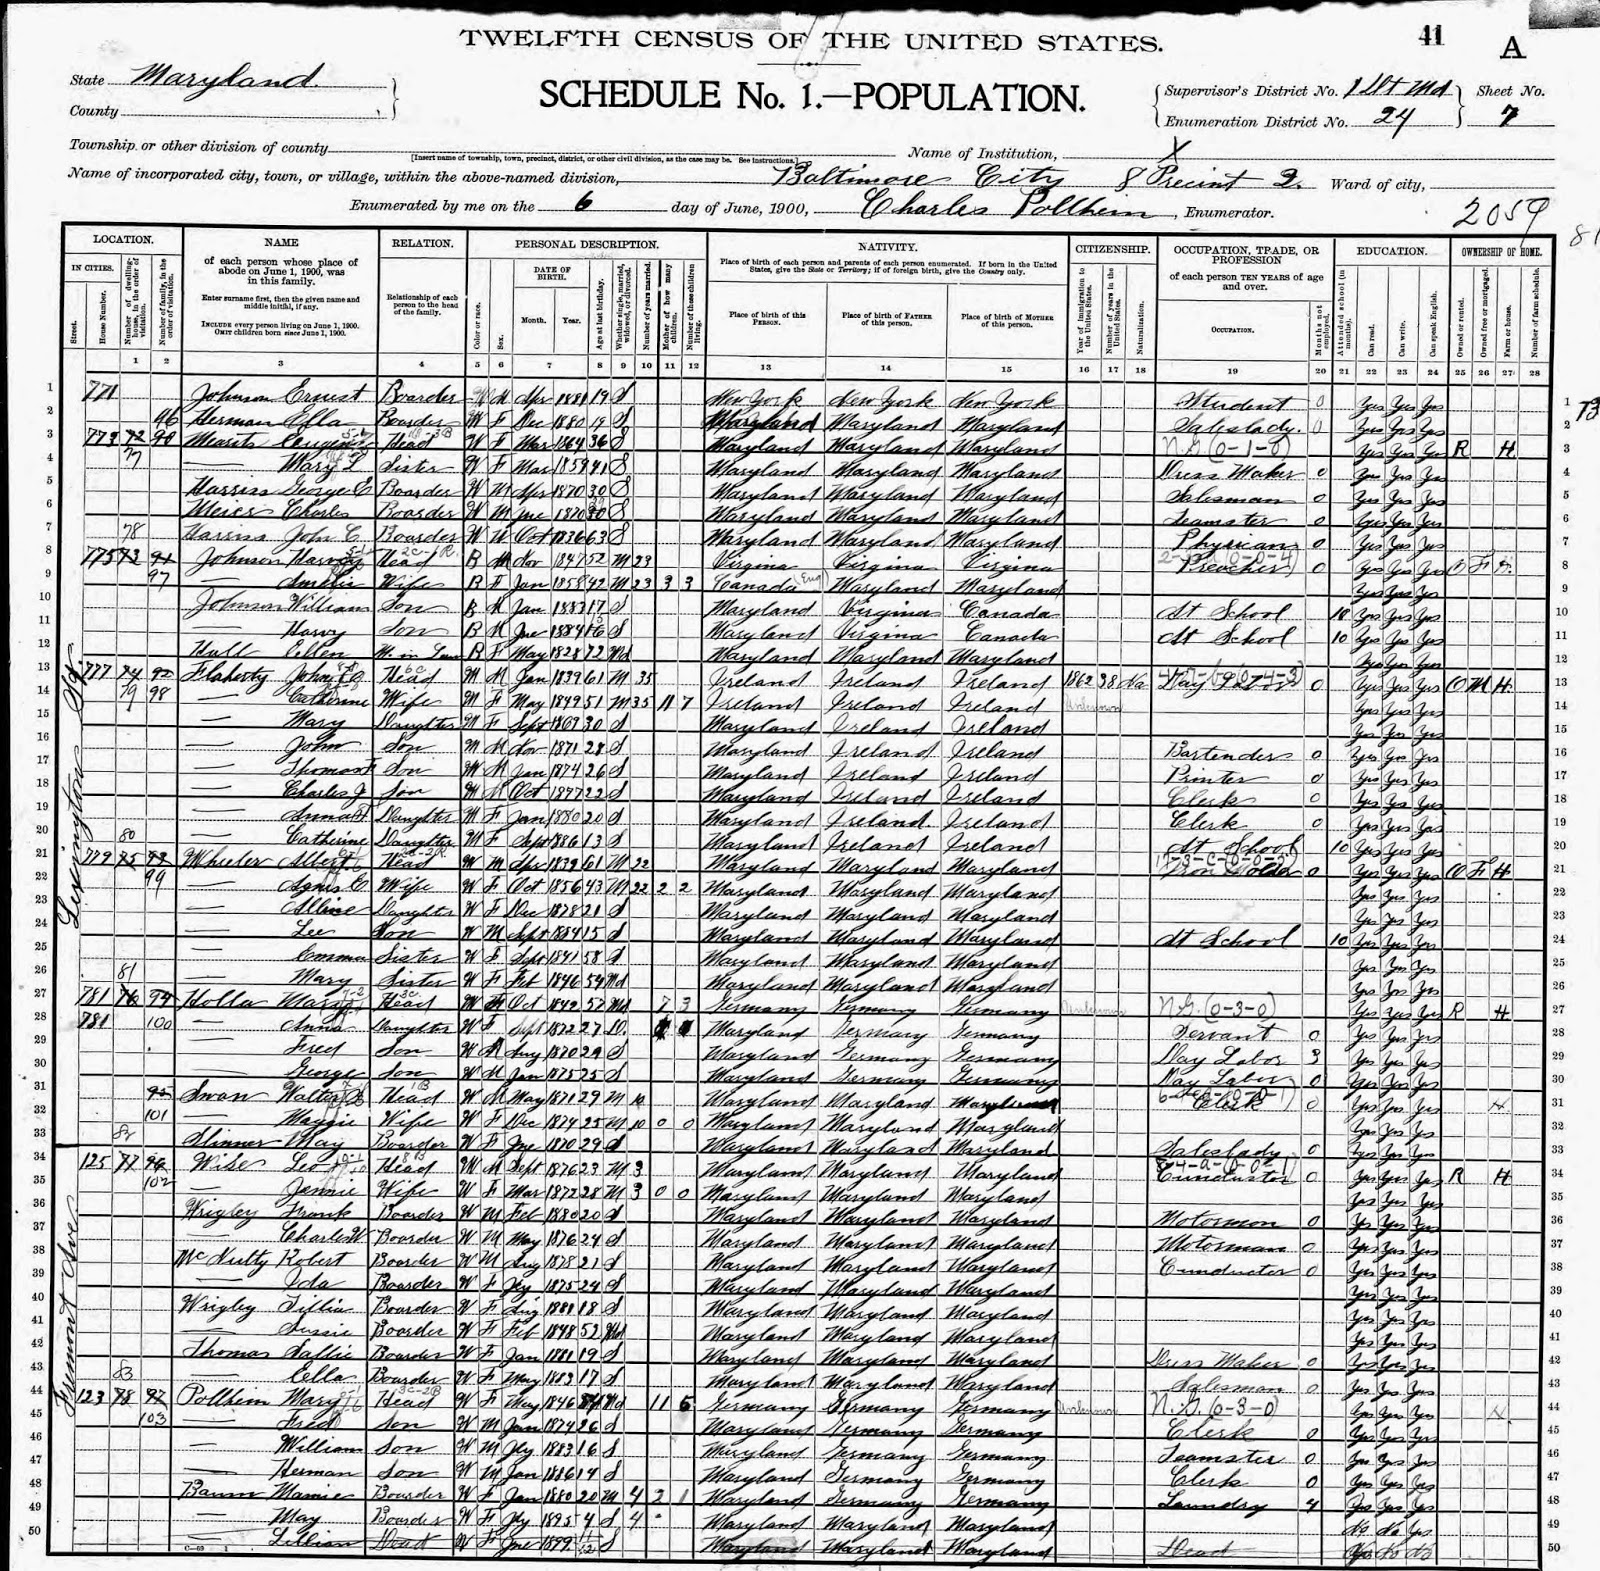 TWELFTH CENSUS OF THE UNITED STATES.
41 A
State Maryland
County
SCHEDULE No. 1.—POPULATION.
Supervisor's District No. 1st Md
Enumeration District No. 24
Sheet No. 7
Township or other division of county
[Insert name of township, town, precinct, district, or other civil division, as the case may be. See instructions.]
Name of Institution, X
Name of incorporated city, town, or village, within the above-named division, Baltimore City 8 Precint 2. Ward of city,
Enumerated by me on the 6 day of June, 1900, Charles Pollhein, Enumerator.
2059
LOCATION. NAME RELATION. PERSONAL DESCRIPTION. NATIVITY. CITIZENSHIP. OCCUPATION, TRADE, OR PROFESSION EDUCATION. OWNERSHIP OF HOME.
IN CITIES. of each person whose place of abode on June 1, 1900, was in this family.
Enter surname first, then the given name and middle initial, if any.
INCLUDE every person living on June 1, 1900. OMIT children born since June 1, 1900.
Relationship of each person to the head of the family.
DATE OF BIRTH. Month. Year.
Place of birth of each person and parents of each person enumerated. If born in the United States, give the State or Territory; if of foreign birth, give the Country only.
Place of birth of this PERSON. Place of birth of FATHER of this person. Place of birth of MOTHER of this person.
of each person TEN YEARS of age and over.
OCCUPATION.
1 2 3 4 5 6 7 8 9 10 11 12 13 14 15 16 17 18 19 20 21 22 23 24 25 26 27 28
1 771 Johnson Ernest Boarder W M Apr 1881 19 S New York New York New York Student 0 Yes Yes Yes
2 Herman Ella Boarder W F Dec 1880 19 S Maryland Maryland Maryland Saleslady 0 Yes Yes Yes
3 773 Head W F Mar 1864 36 S Maryland Maryland Maryland N.G (0-1-0) Yes Yes Yes R H
4 Mary L Sister W F Mar 1859 41 S Maryland Maryland Maryland Dress Maker 0 Yes Yes Yes
5 Harriss George E Boarder W M Apr 1870 30 S Maryland Maryland Maryland Salesman 0 Yes Yes Yes
6 Meier Charles Boarder W M Jne 1870 30 S Maryland Maryland Maryland Teamster 0 Yes Yes Yes
7 Harriss John C. Boarder W M Oct 1836 63 S Maryland Maryland Maryland Physican 0 Yes Yes Yes
8 775 Johnson Harvey Head B M Nov 1847 52 M 23 Virginia Virginia Virginia Preacher 0 Yes Yes Yes O F H
9 97 Amelia Wife B F Jan 1858 42 M 23 3 3 Canada (Eng) Maryland Maryland Yes Yes Yes
10 Johnson William Son B M Jan 1883 17 S Maryland Virginia Canada At School 10 Yes Yes Yes
11 Harvy Son B M Jne 1884 16 S Maryland Virginia Canada At School 10 Yes Yes Yes
12 Hull Ellen M. in Law B F May 1828 72 Wd Maryland Maryland Maryland Yes Yes Yes
13 777 Flaherty John Head W M Jan 1839 61 M 35 Ireland Ireland Ireland 1862 38 Na Day Labor 0 Yes Yes Yes O M H
14 79 98 Catherine Wife W F May 1849 51 M 35 11 7 Ireland Ireland Ireland Unknown Yes Yes Yes
15 Mary Daughter W F Sept 1869 30 S Maryland Ireland Ireland Yes Yes Yes
16 John Son W M Nov 1871 28 S Maryland Ireland Ireland Bartender 0 Yes Yes Yes
17 Thomas F Son W M Jan 1874 26 S Maryland Ireland Ireland Printer 0 Yes Yes Yes
18 Charles J Son W M Oct 1877 22 S Maryland Ireland Ireland Clerk 0 Yes Yes Yes
19 Anna Daughter W F Jan 1880 20 S Maryland Ireland Ireland Clerk 0 Yes Yes Yes
20 Catherine Daughter W F Sept 1886 13 S Maryland Ireland Ireland At School 10 Yes Yes Yes
21 779 Wheeler Albert Head W M Apr 1839 61 M 22 Maryland Maryland Maryland Iron Molder 0 Yes Yes Yes O F H
22 99 Agnes C. Wife W F Oct 1856 43 M 22 2 2 Maryland Maryland Maryland Yes Yes Yes
23 Daughter W F Dec 1878 21 S Maryland Maryland Maryland Yes Yes Yes
24 Lee Son W M Sept 1884 15 S Maryland Maryland Maryland At School 10 Yes Yes Yes
25 Emma Sister W F Sept 1841 58 S Maryland Maryland Maryland Yes Yes Yes
26 81 Mary Sister W F Feb 1846 54 Wd Maryland Maryland Maryland Yes Yes Yes
27 781 Holla Mary Head W F Oct 1842 57 Wd 7 3 Germany Germany Germany Unknown N.G. (0-3-0) Yes Yes Yes R H
28 781 100 Anna Daughter W F Sept 1872 27 Maryland Germany Germany Servant 0 Yes Yes Yes
29 Fred Son W M Aug 1870 29 S Maryland Germany Germany Day Labor 3 Yes Yes Yes
30 George Son W M Jan 1875 25 S Maryland Germany Germany Day Labor 0 Yes Yes Yes
31 Swan Walter Head W M May 1871 29 M 10 Maryland Maryland Maryland Clerk 0 Yes Yes Yes
32 101 Maggie Wife W F Dec 1874 25 M 10 0 0 Maryland Maryland Maryland Yes Yes Yes
33 82 Skinner May Boarder W F Jne 1870 29 S Maryland Maryland Maryland Saleslady 0 Yes Yes Yes
34 125 Wise Leo Head W M Sept 1876 23 M 3 Maryland Maryland Maryland Cunductor 0 Yes Yes Yes R H
35 102 Jennie Wife W F Mar 1872 28 M 3 0 0 Maryland Maryland Maryland Yes Yes Yes
36 Wrigley Frank Boarder W M Feb 1880 20 S Maryland Maryland Maryland Motorman 0 Yes Yes Yes
37 Charles W Boarder W M May 1876 24 S Maryland Maryland Maryland Motorman 0 Yes Yes Yes
38 McNulty Robert Boarder W M Aug 1878 21 S Maryland Maryland Maryland Cunductor 0 Yes Yes Yes
39 Ida Boarder W F Jly 1875 24 S Maryland Maryland Maryland Yes Yes Yes
40 Wrigley Lillie Boarder W F Aug 1881 18 S Maryland Maryland Maryland Yes Yes Yes
41 Sussie Boarder W F Feb 1848 52 Wd Maryland Maryland Maryland Yes Yes Yes
42 Thomas Sallie Boarder W F Jan 1881 19 S Maryland Maryland Maryland Dress Maker 0 Yes Yes Yes
43 83 Ella Boarder W F May 1883 17 S Maryland Maryland Maryland Salesman 0 Yes Yes Yes
44 123 Pollhein Mary Head W F May 1846 54 Wd 11 5 Germany Germany Germany Unknown N.G. (0-3-0) Yes Yes Yes
45 103 Fred Son W M Jan 1874 26 S Maryland Germany Germany Clerk 0 Yes Yes Yes
46 William Son W M Jly 1883 16 S Maryland Germany Germany Teamster 0 Yes Yes Yes
47 Herman Son W M Jan 1886 14 S Maryland Germany Germany Clerk 0 Yes Yes Yes
48 Baum Mamie Boarder W F Jan 1880 20 M 4 2 1 Maryland Germany Germany Laundry 4 Yes Yes Yes
49 May Boarder W F Jly 1895 4 S Maryland Maryland Maryland No No Yes
50 Lillian Dead W F Jne 1899 11/12 S Maryland Maryland Maryland Dead No No No
Lexington St
Fremont Ave